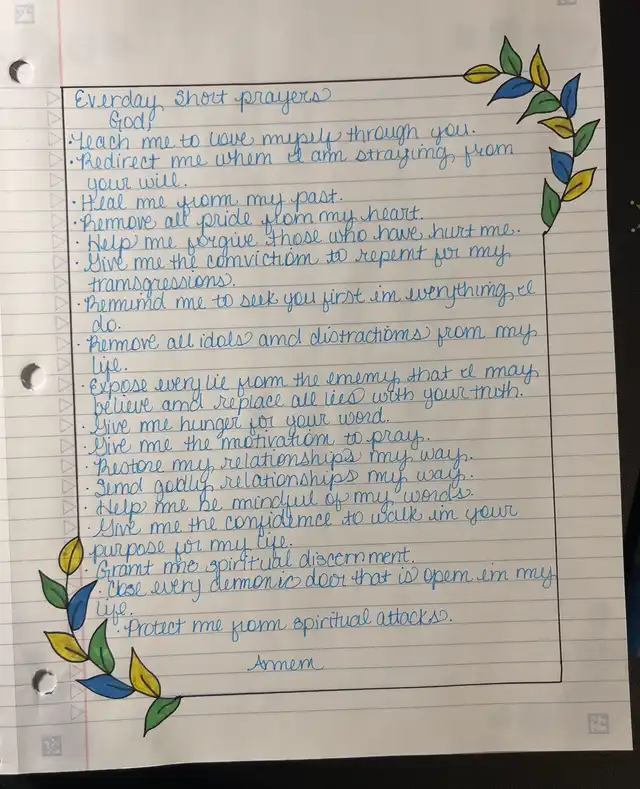 Everday short prayers
God,
· Teach me to love myself through you.
· Redirect me when I am straying from
your will.
· Heal me from my past.
· Remove all pride from my heart.
· Help me forgive those who have hurt me.
· Give me the conviction to repent for my
transgressions.
· Remind me to seek you first in everything I
do.
· Remove all idols and distractions from my
life.
· Expose every lie from the enemy that I may
believe and replace all lies with your truth.
· Give me hunger for your word.
· Give me the motivation to pray.
· Restore my relationships my way.
· Send godly relationships my way.
· Help me be mindful of my words.
· Give me the confidence to walk in your
purpose for my life.
· Grant me spiritual discernment.
· Close every demonic door that is open in my
life.
· Protect me from spiritual attacks.
Amen